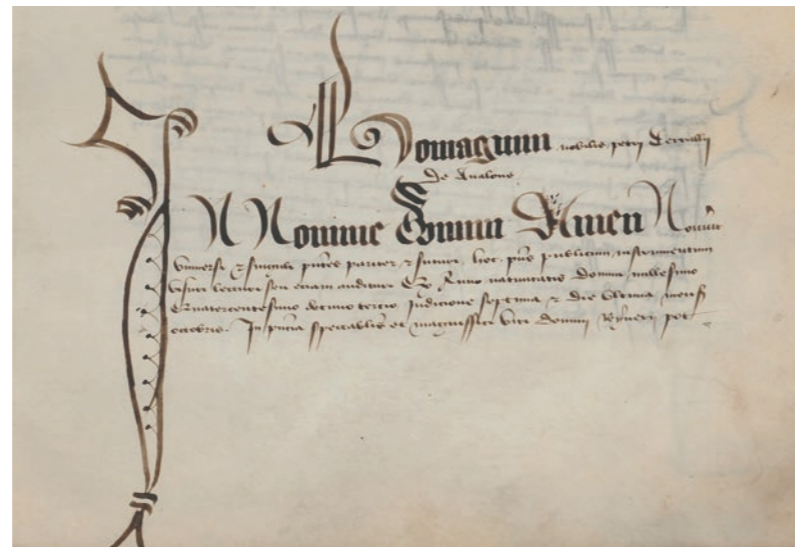 Homagium nobilis petri Terrallii
de Aualone
IN Nomine Domini Amen Nouerit
vniuersi et singuli pñtes pariter et futuri hoc pñs publicum instrumentum
visuri lecturi seu etiam audituri Quod Anno natiuitatis domini millesimo
Quatercentesimo decimo tercio Indicione septima et die vltima mensis
octobris. In pñcia spectabilis et magniffici viri domini Reyneri pot